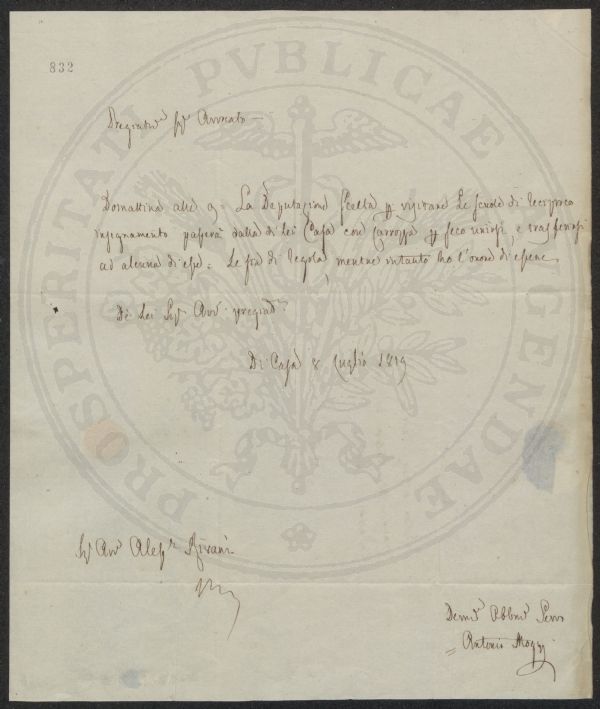 832
PROSPERITATI PVBLICAE AVGENDAE
Pregiatmo Sigr Avvocato —
Domattina alle 9. La Deputazione scelta per visitare le scuole di reciproco
insegnamento passerà dalla di lei Casa con Carrozza per seco unirsi, e trasferirsi
ad alcuna di esse. Le sia di regola, mentre intanto ho l'onore di essere
Di Lei Sigr Avv. pregiatmo
Di Casa 8 Luglio 1819
Sigr Avv Aless
Devmo Obbmo Serv
= Antonio